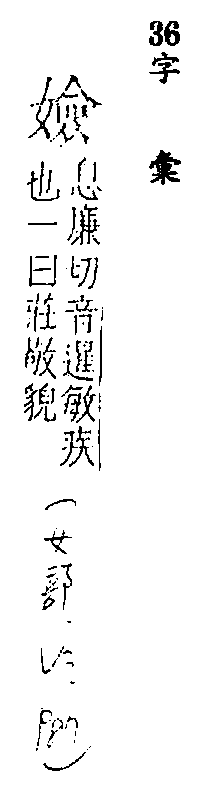 36字彙
嬐
息廉切音暹敏疾
也一曰莊敬貌
(女部